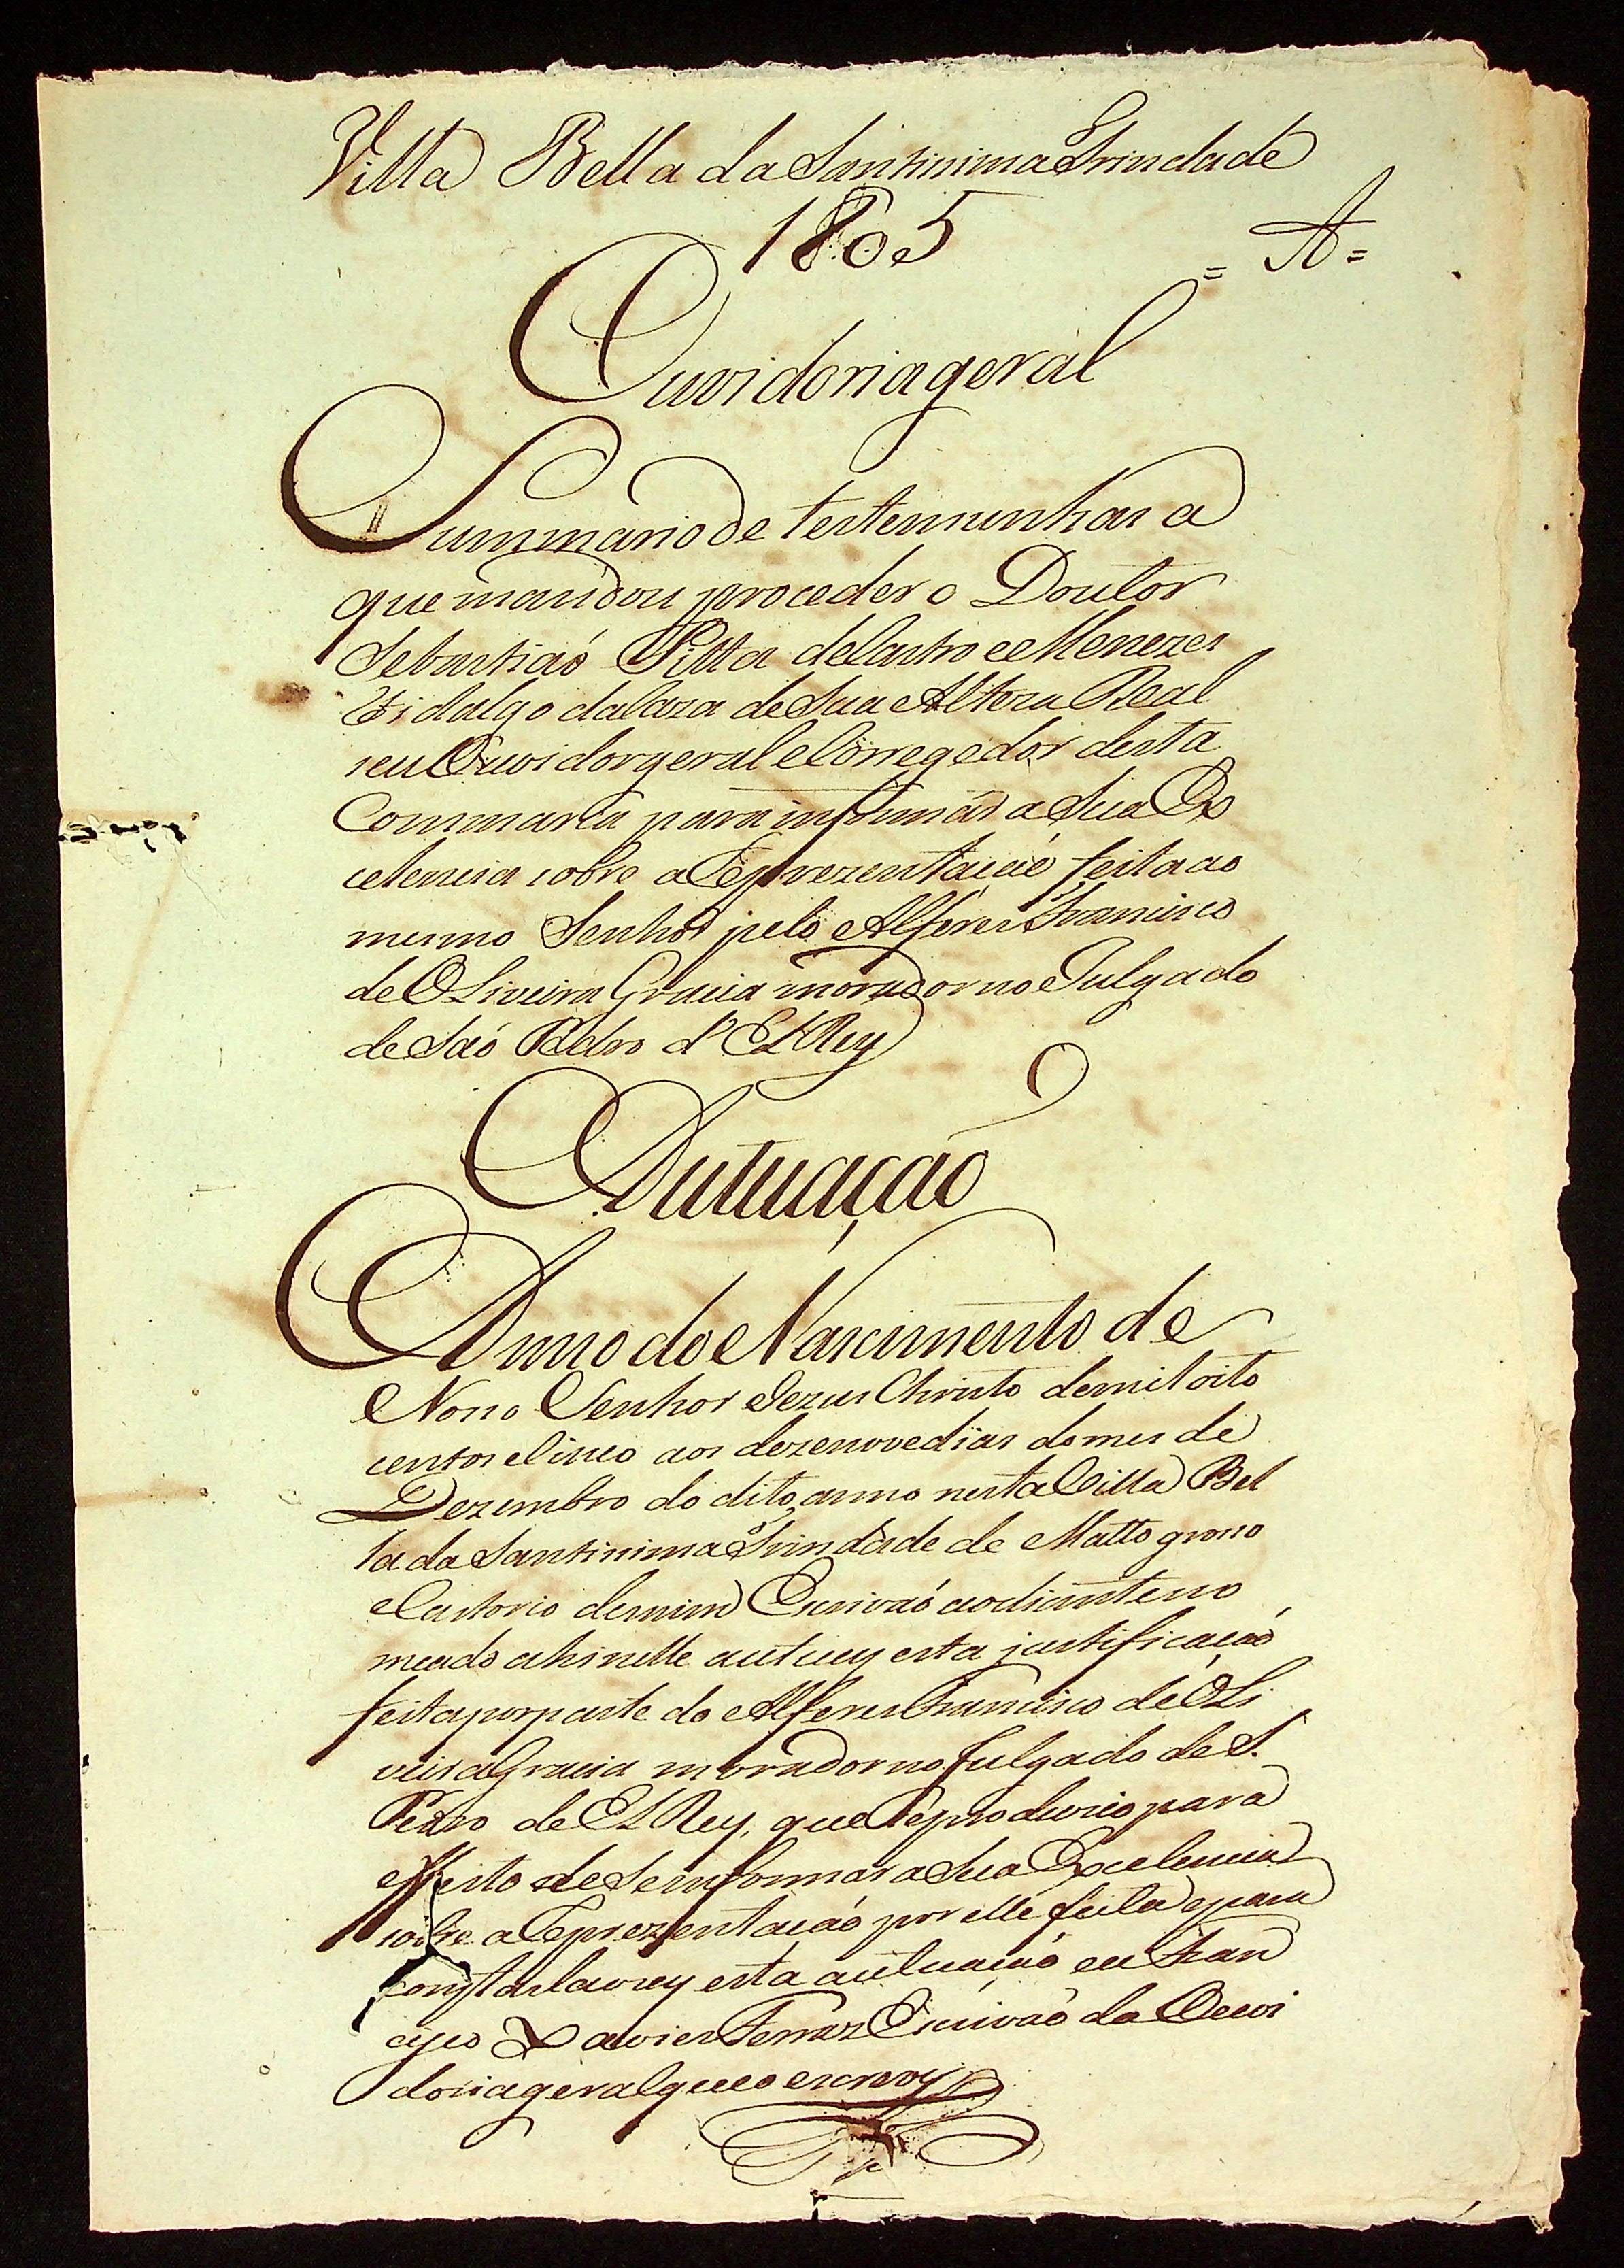 Villa Bella da Santissima Trindade
1805
= A =
Ouvidoria geral
Summario de testemunhas a
que mandou proceder o Doutor
Sebastiaõ Pitta de Castro e Menezes
Fidalgo da Caza de Sua Alteza Real
seu Ouvidor geral e Corregedor desta
Commarca para informar a Sua Ex
celencia sobre a Reprezentaçaõ feita ao
mesmo Senhor pelo Alferes Francisco
de OLiveira Gracia morador no Julgado
de Saõ Pedro d'ElRey
Autuaçaõ
Anno do Nascimento de
Nosso Senhor Jezus Christo de mil oito
centos e Cinco aos dezenove dias do mes de
Dezembro do dito anno nesta Villa Bel
la da Santissima Trindade de Matto grosso
e Cartorio de mim Escrivaõ ao diante no
meado ahi nelle autuey esta justificaçaõ
feita por parte do Alferes Francisco de OLi
veira Gracia morador no Julgado de S.
Pedro de ElRey, que Reproduzio para
effeito de Se informar a Sua Excelencia
sobre a Reprezentaçaõ por elle feita e para
constar Lavrey esta autuaçaõ eu Fran
cisco Xavier Ferraz Escrivaõ da Ouvi
doria geral que o escrevy